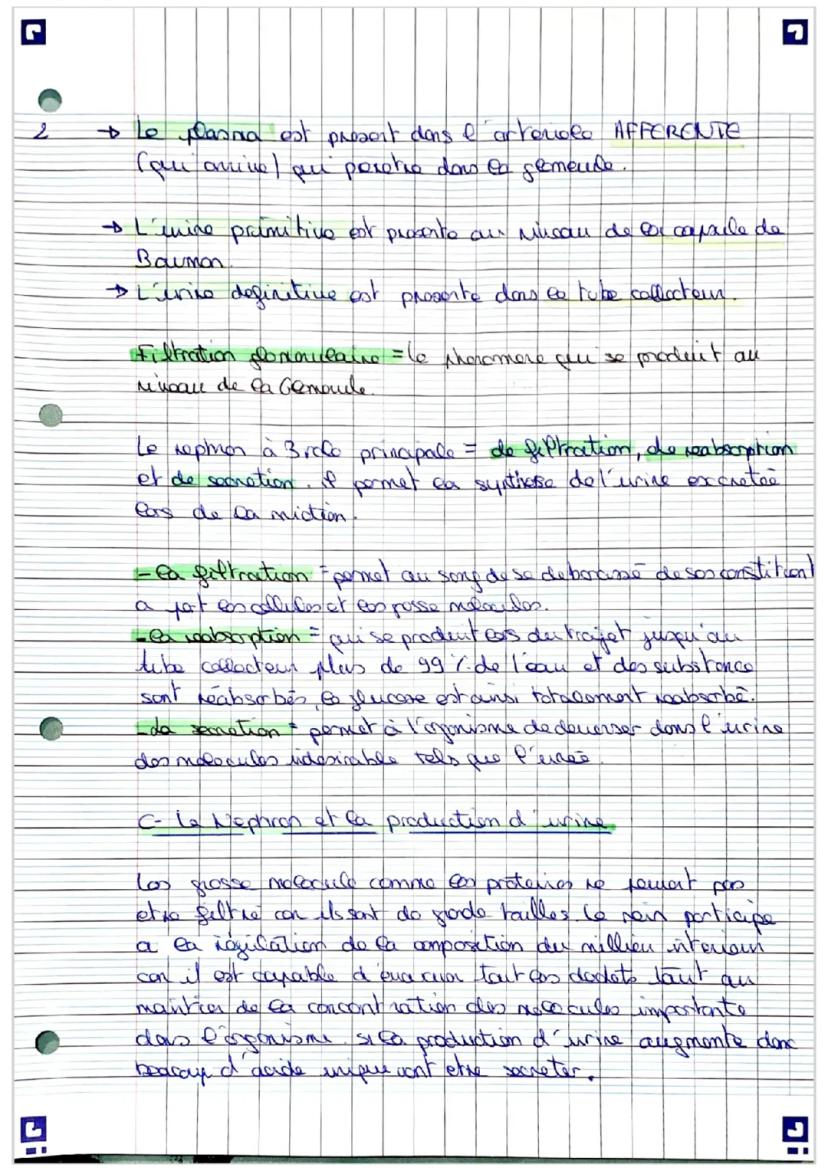 2 → Le plasma est present dans l'arteriole AFFERENTE
(qui arrive) qui penetre dans la glomerule.
→ L'urine primitive est presente au niveau de la capsule de
Bauman.
→ L'urine definitive est presente dans le tube collecteur.
Filtration glomerulaire = le phenomene qui se produit au
niveau de la Glomerule.
Le nephron à 3 role principale = de filtration, de reabsorption
et de secretion. il permet la synthese de l'urine excretée
lors de la miction.
- la filtration = permet au sang de se debarassé de ses constituant
a part les cellules et les grosse molecules.
- la reabsorption = qui se produit lors du trajet jusqu'au
tube collecteur plus de 99 % de l'eau et des substance
sont réabsorbés, le glucose est ainsi totalement reabsorbé.
- la secretion = permet à l'organisme de deverser dans l'urine
des molecules indesirable tels que l'urée.
C- Le Nephron et la production d'urine
Les grosse molecule comme les proteines ne peuvent pas
etre filtré car ils sont de grande tailles. Le rein participe
a la régulation de la composition du millieu interieur
car il est capable d'evacuer tout les dechets tout au
maintien de la concentration des molecules importante
dans l'organisme. si la production d'urine augmente donc
beaucoup d'acide urique vont etre secreter.